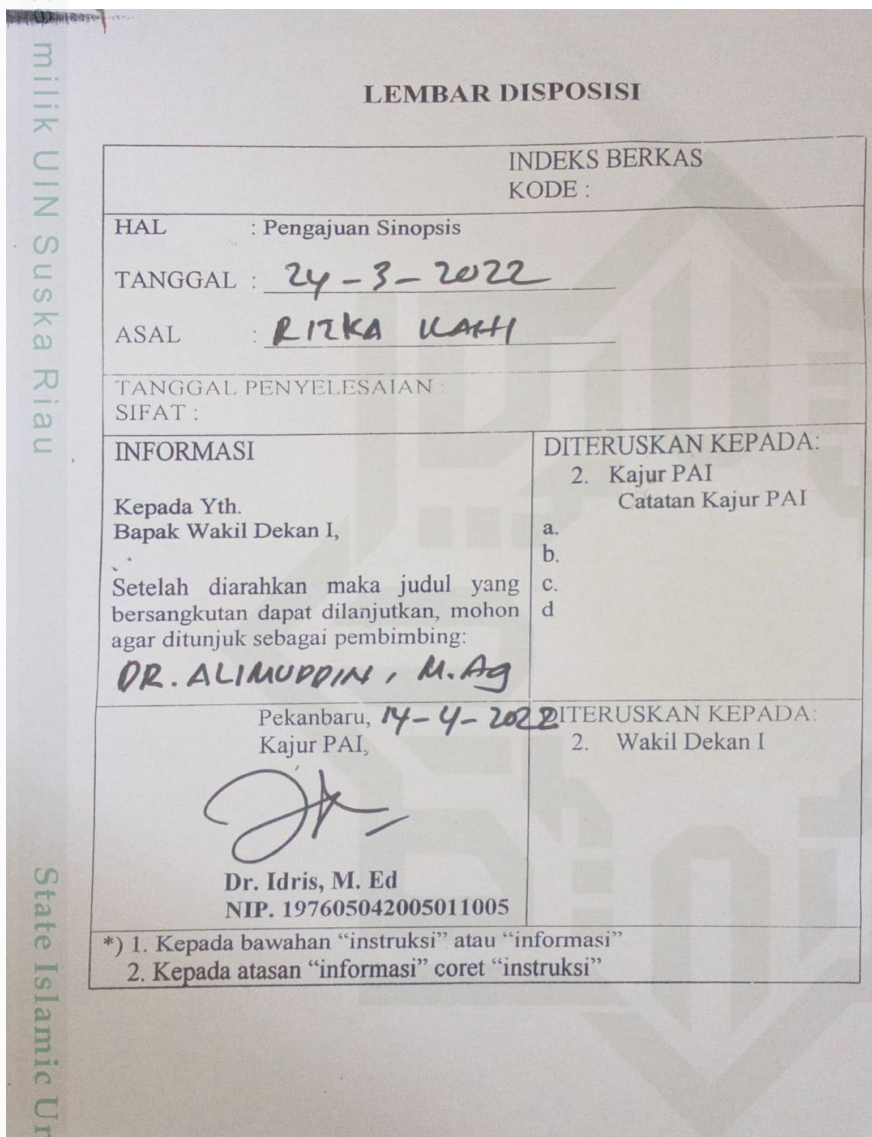 milik UIN Suska Riau
State Islamic
LEMBAR DISPOSISI
INDEKS BERKAS
KODE :
HAL : Pengajuan Sinopsis
TANGGAL : 24-3-2022
ASAL : RIZKA
TANGGAL PENYELESAIAN :
SIFAT :
INFORMASI
Kepada Yth.
Bapak Wakil Dekan I,
Setelah diarahkan maka judul yang
bersangkutan dapat dilanjutkan, mohon
agar ditunjuk sebagai pembimbing:
DR. ALIMUDDIN, M.Ag
DITERUSKAN KEPADA:
2. Kajur PAI
Catatan Kajur PAI
a.
b.
c.
d
Pekanbaru, 14-4-2022
Kajur PAI,
Dr. Idris, M. Ed
NIP. 197605042005011005
DITERUSKAN KEPADA:
2. Wakil Dekan I
*) 1. Kepada bawahan “instruksi” atau “informasi”
2. Kepada atasan “informasi” coret “instruksi”